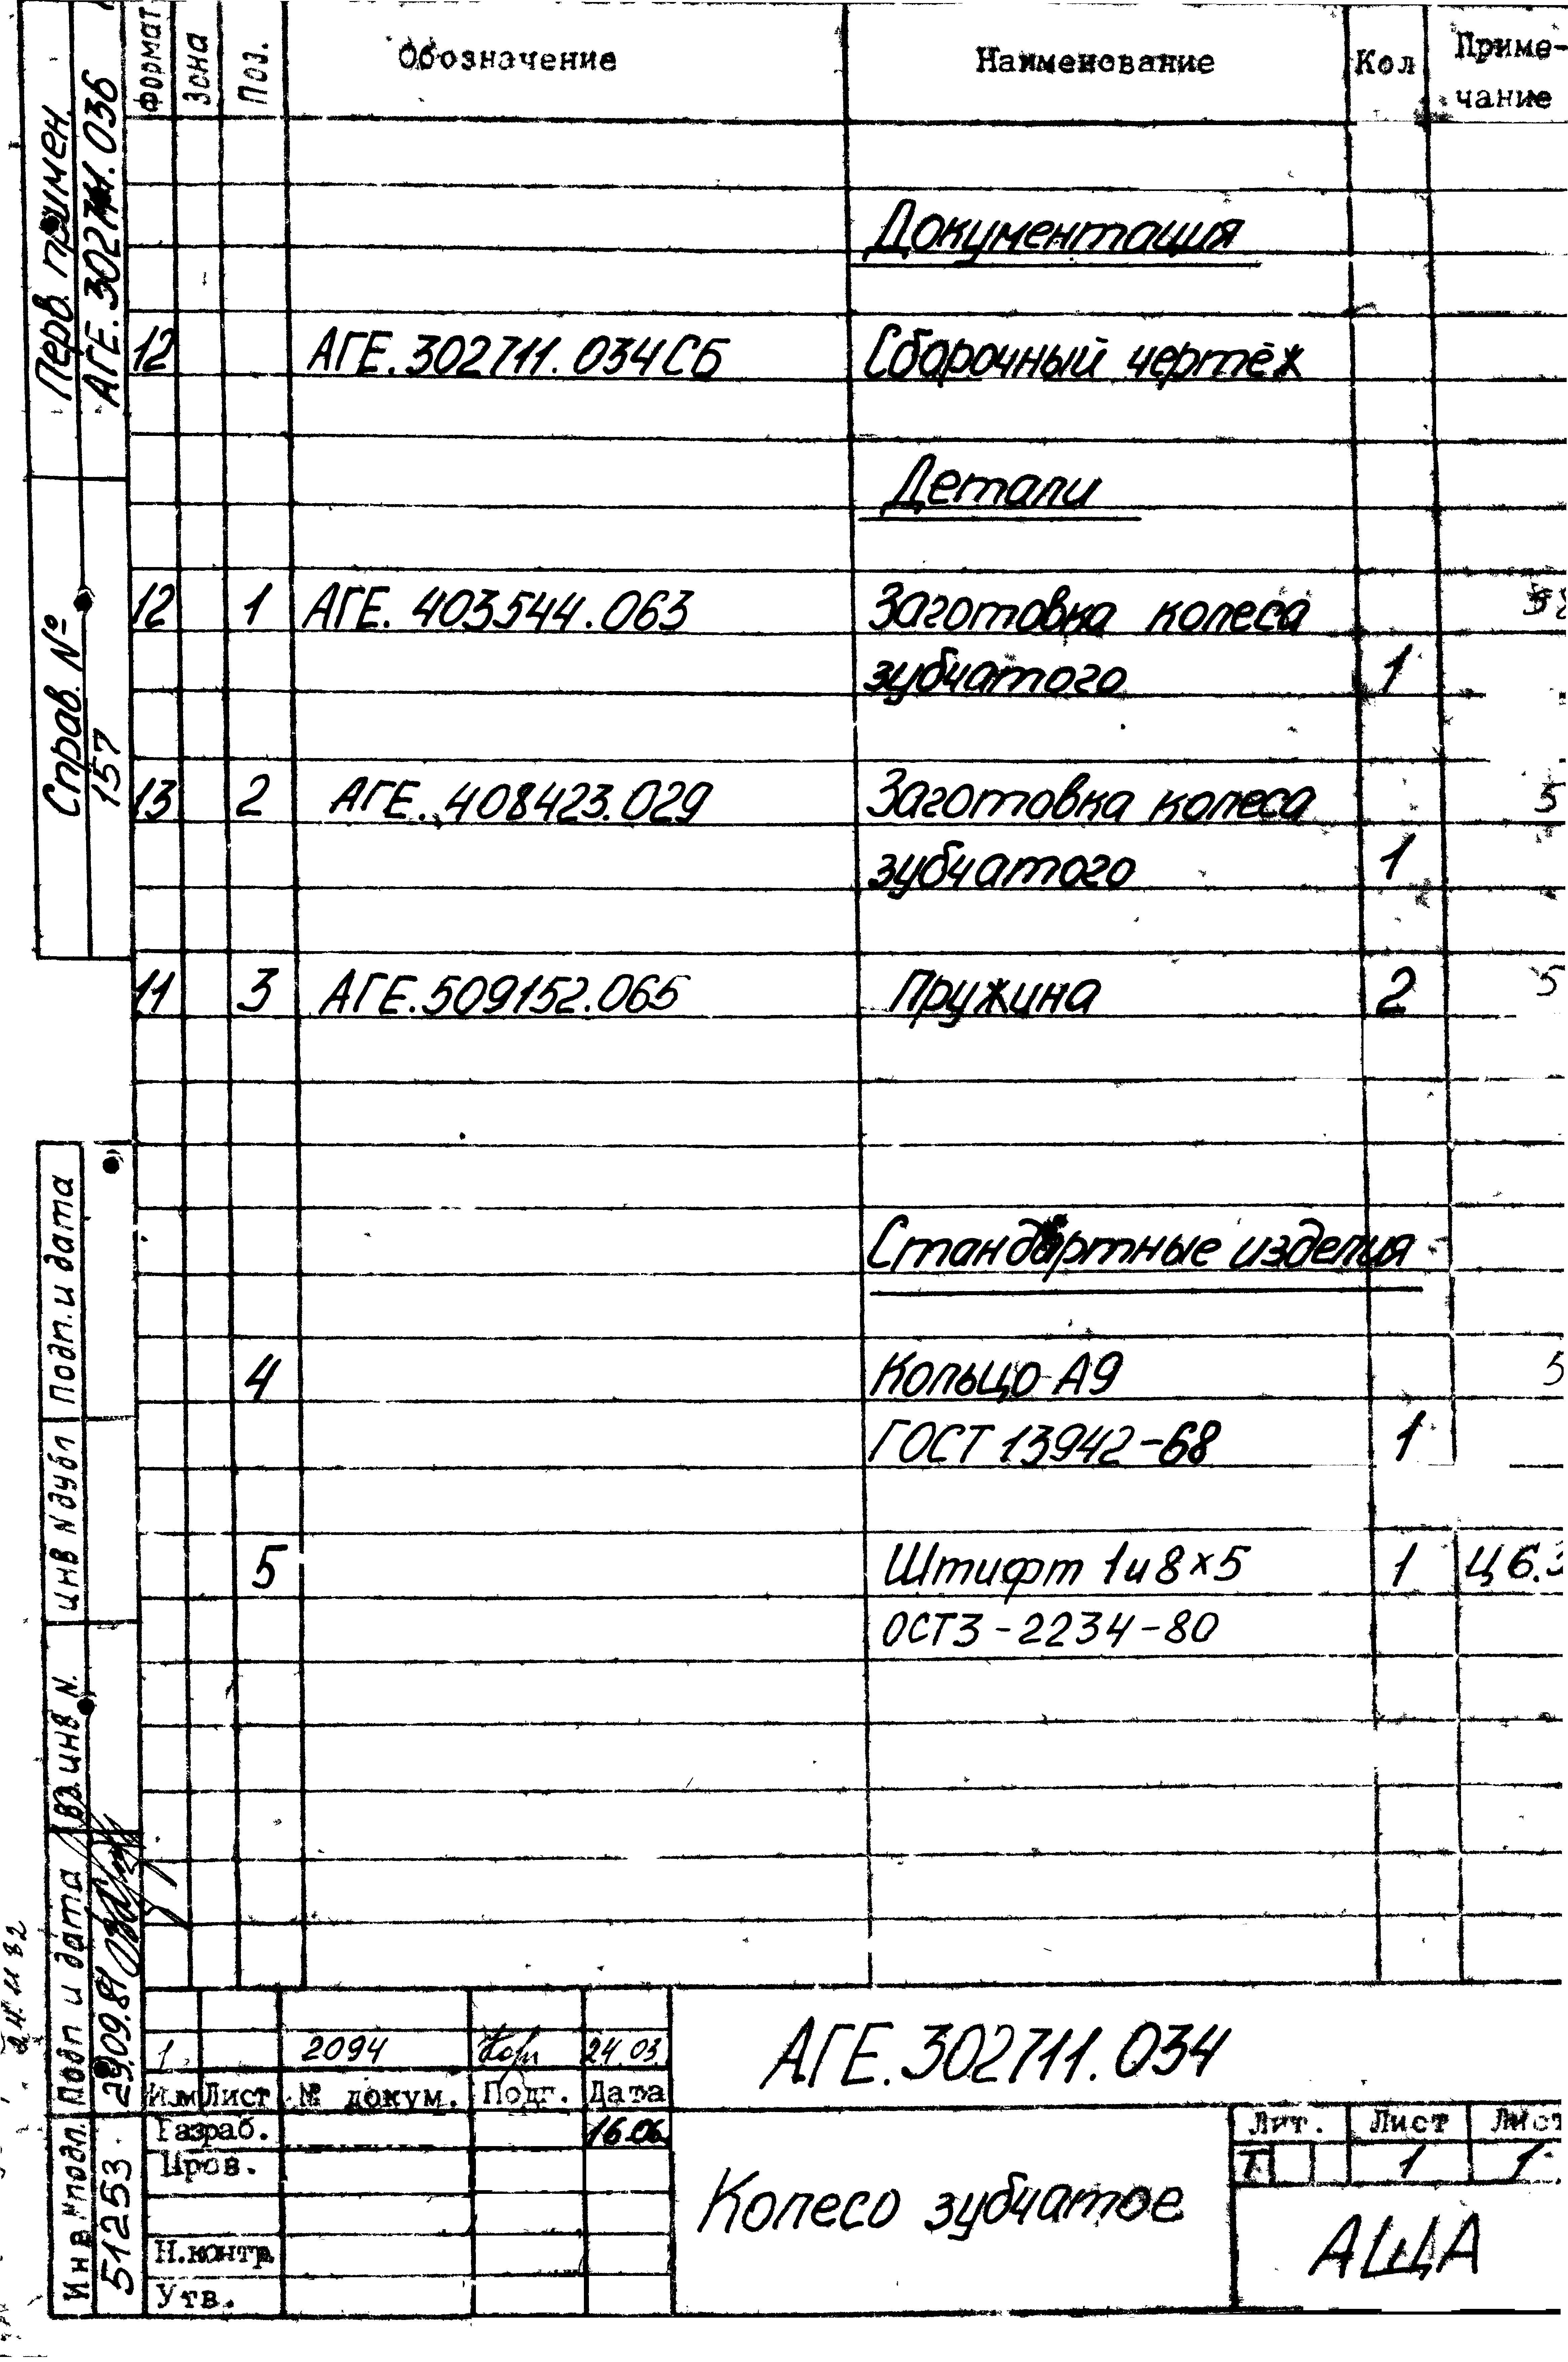 Формат Зона Поз. Обозначение Наименование Кол Приме-
чание
Документация
12 АГЕ.302711.034СБ Сборочный чертёж
Детали
12 1 АГЕ.403544.063 Заготовка колеса
зубчатого 1
13 2 АГЕ.408423.029 Заготовка колеса 5
зубчатого 1
11 3 АГЕ.509152.065 Пружина 2 5
Стандартные изделия
4 Кольцо А9 5
ГОСТ 13942-68 1
5 Штифт 1и8×5 1 Ц6.
ОСТ3-2234-80
Перв. примен.
АГЕ.302711.036
Справ. №
157
Подп. и дата
Инв N дубл
Вз. инв N.
Подп и дата
29.09.81
Инв N подл.
512253
1 2094 24.03.
Изм Лист № докум. Подп. Дата
Разраб. 16.06.
Пров.
Н.контр.
Утв.
АГЕ.302711.034
Колесо зубчатое
Лит. Лист Лист
1 1
АЩА